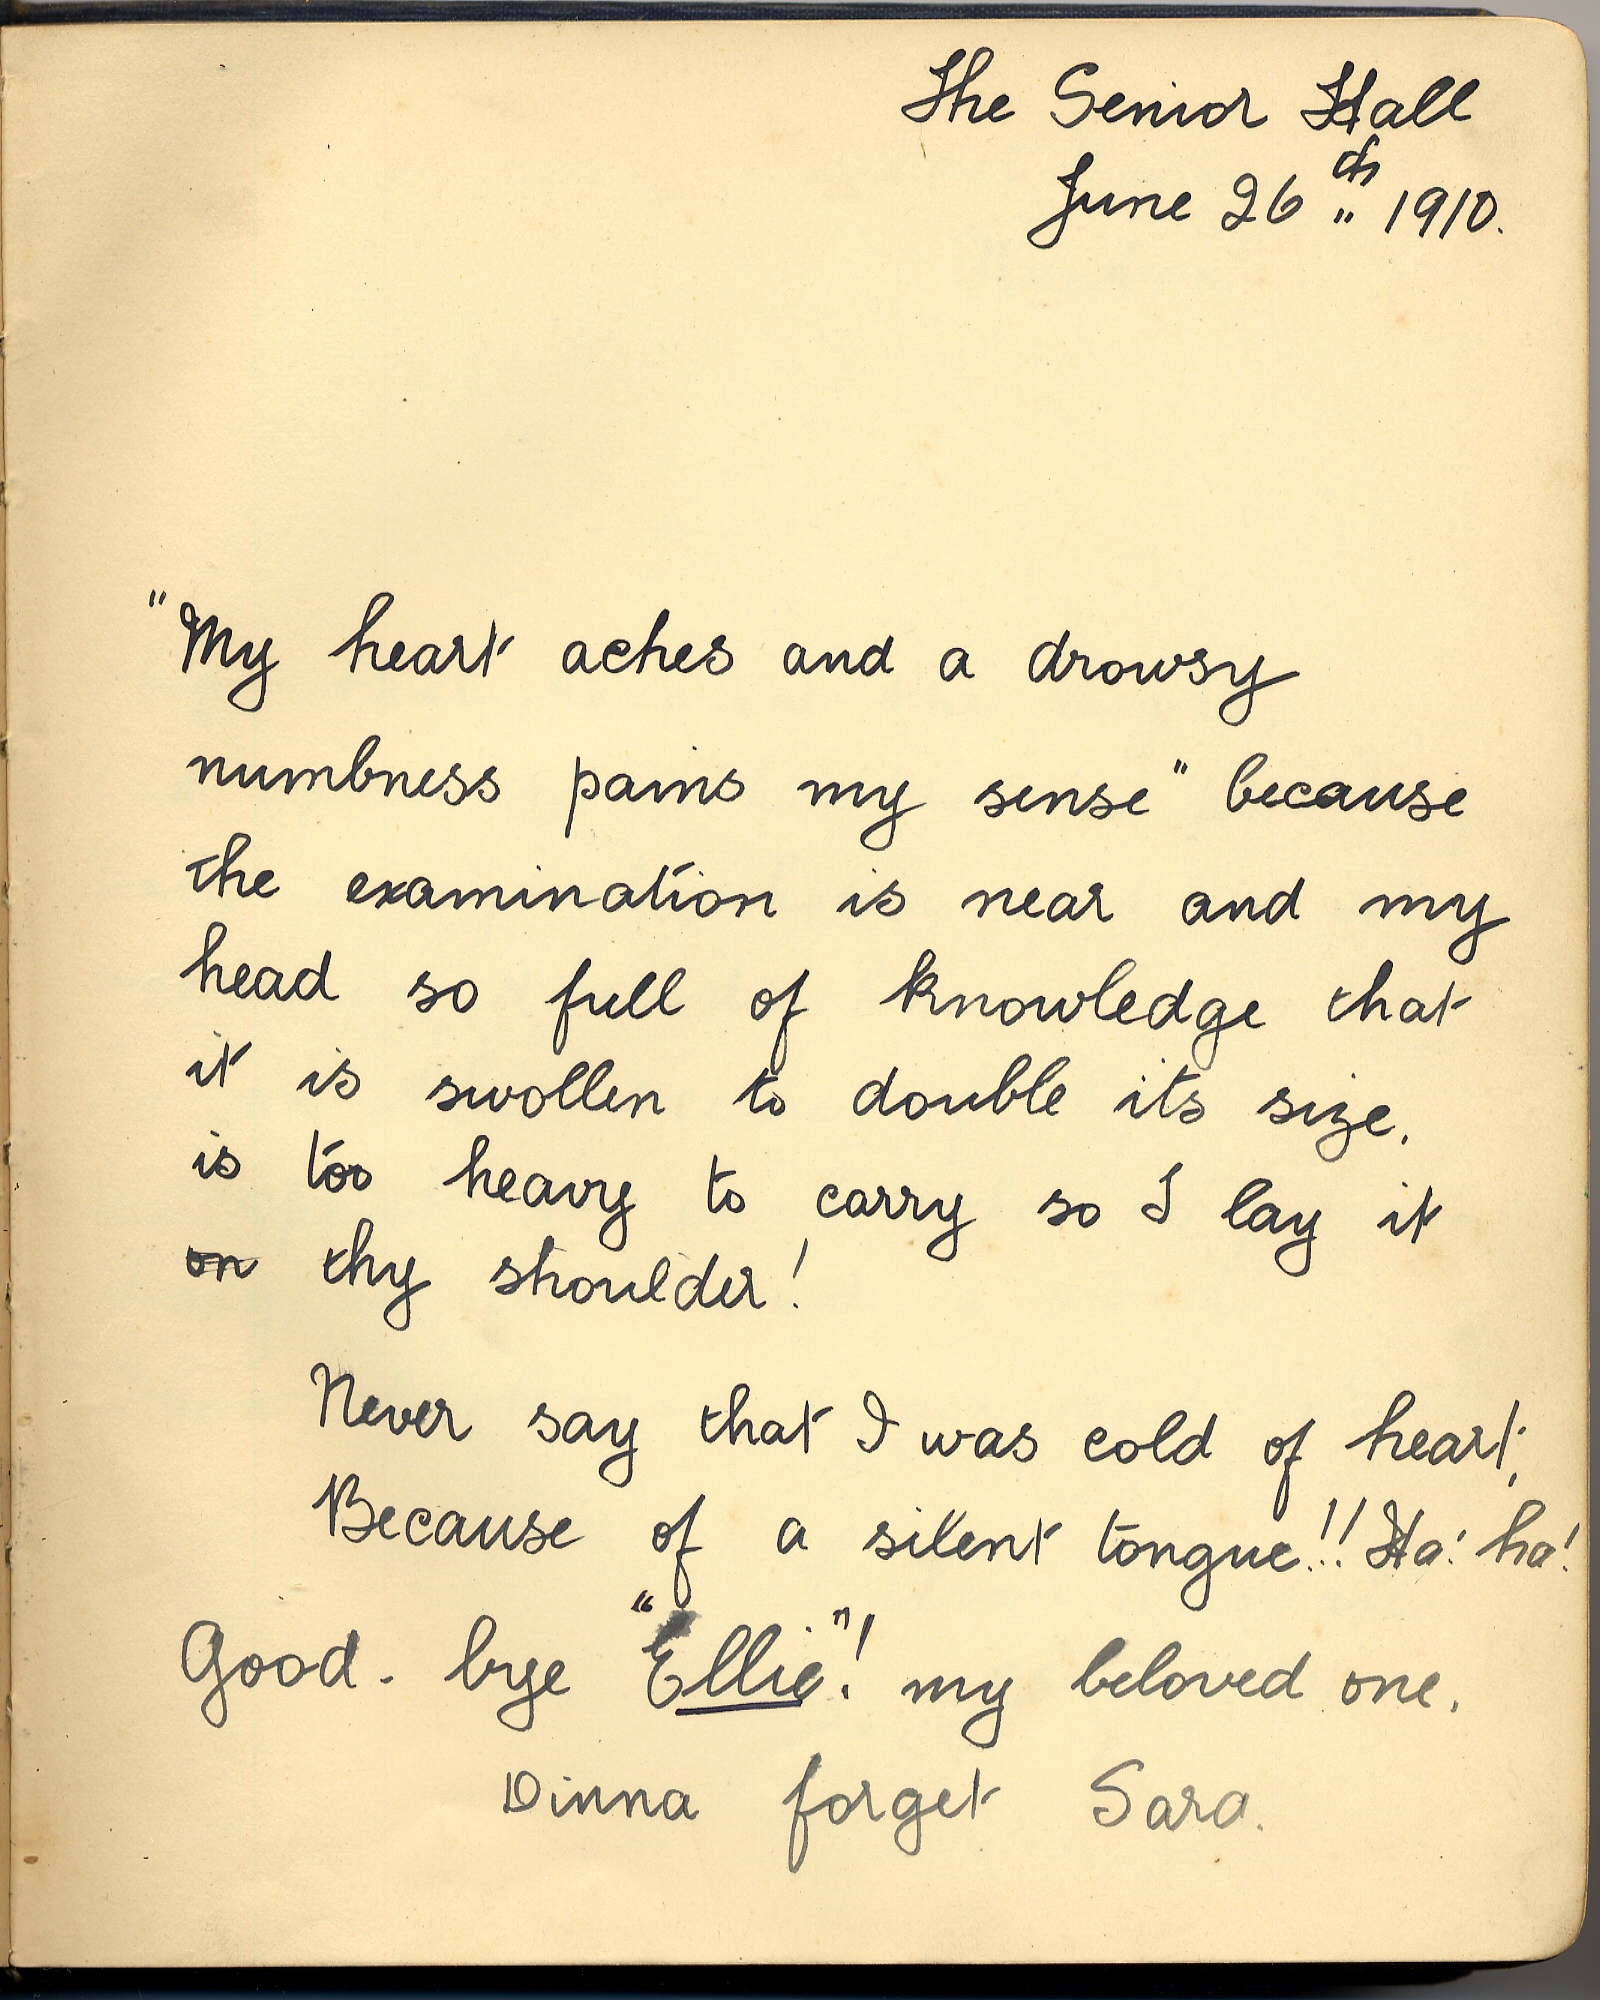 The Senior Hall
June 26th 1910.
"My heart aches and a drowsy
numbness pains my sense" because
the examination is near and my
head so full of knowledge that
it is swollen to double its size.
is too heavy to carry so I lay it
on thy shoulder!
Never say that I was cold of heart,
Because of a silent tongue!! Ha! ha!
Good-bye "Ellie"! my beloved one.
Dinna forget Sara.